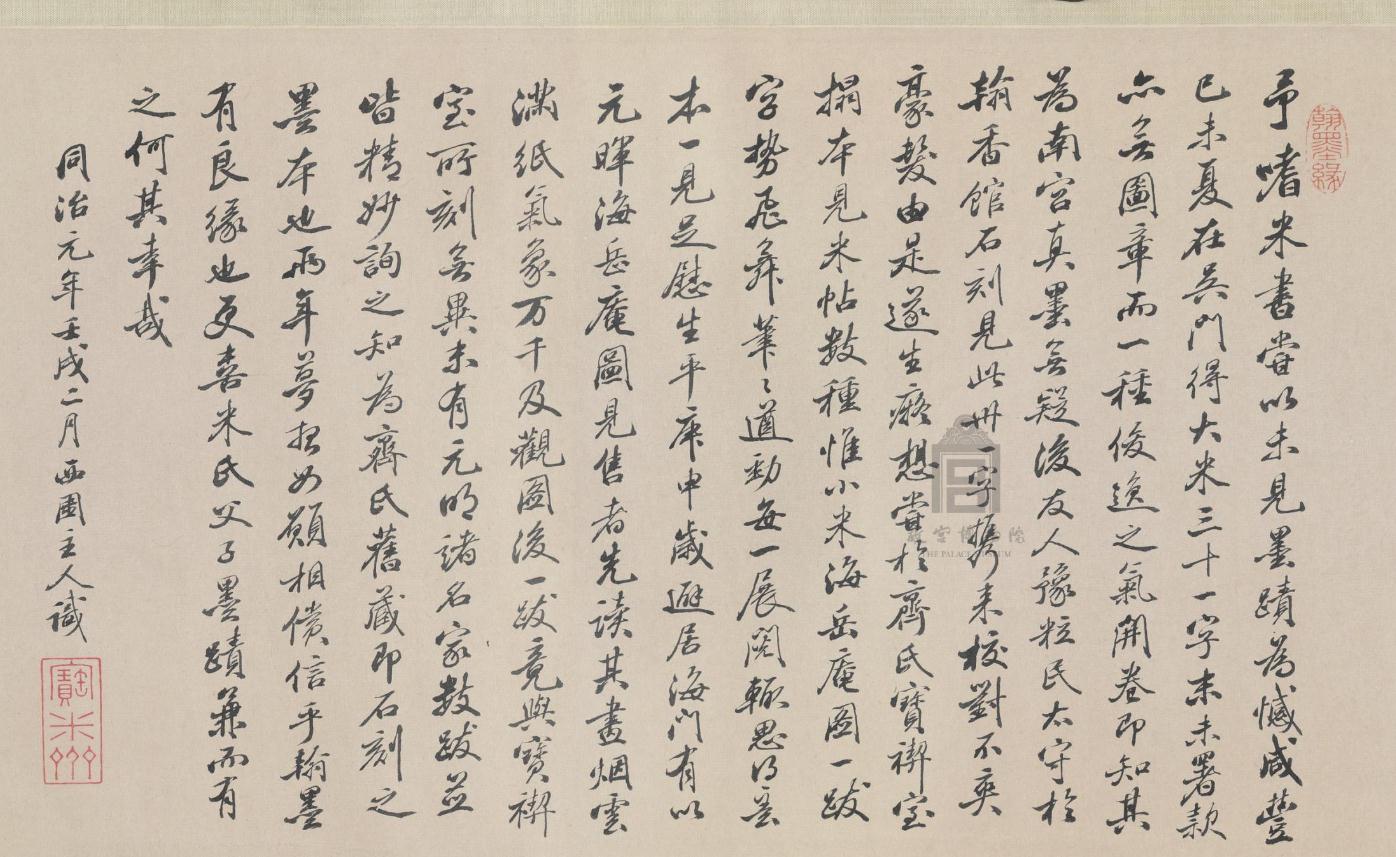 翰墨緣
予嗜米書嘗以未見墨蹟為憾咸豐
己未夏在吳門得大米三十一字末未署款
亦無圖章而一種俊逸之氣開卷即知其
為南宮真墨無疑後友人豫粒民太守於
翰香館石刻見此冊一字攜來校對不爽
豪髮由是遂生癡想嘗於齊氏寶禊室
搨本見米帖數種惟小米海岳庵圖一跋
字勢飛舞筆〻遒勁每一展閱輒思得墨
本一見足慰生平庚申歲避居海門有以
元暉海岳庵圖見售者先讀其畫烟雲
滿紙氣象万千及觀圖後一跋竟與寶禊
室所刻無異末有元明諸名家數跋並
皆精妙詢之知為齊氏舊藏即石刻之
墨本也兩年夢想如願相償信乎翰墨
有良緣也更喜米氏父子墨蹟兼而有
之何其幸哉
同治元年壬戌二月西圃主人識
故宮博物院
THE PALACE MUSEUM